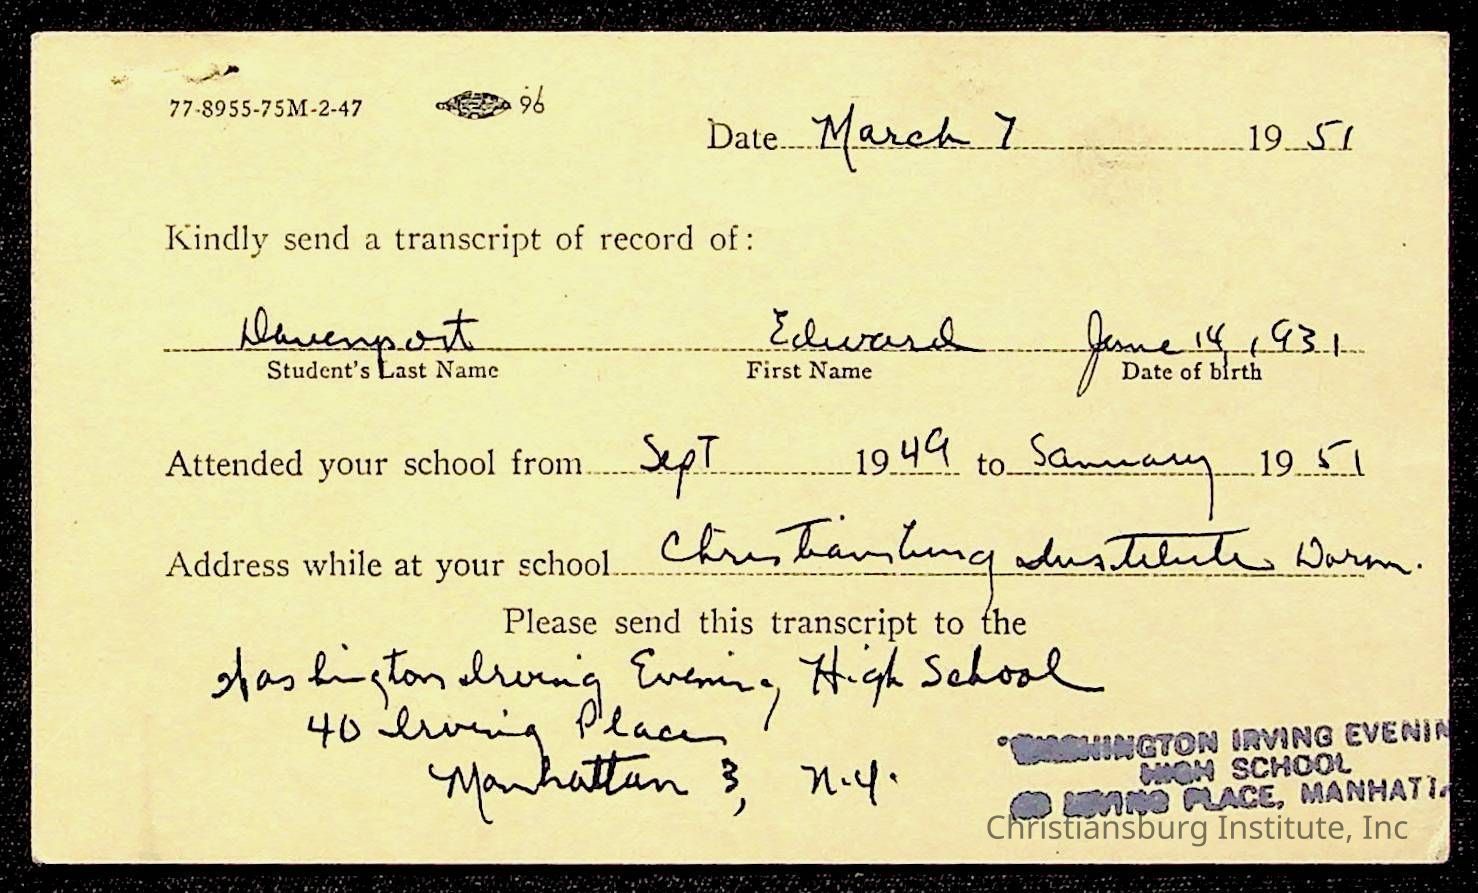 77-8955-75M-2-47 96
Date March 7 1951
Kindly send a transcript of record of:
Davenport Edward June 14, 1931
Student's Last Name First Name Date of birth
Attended your school from Sept 1949 to January 1951
Address while at your school Christiansburg Institute Dorm.
Please send this transcript to the
Washington Irving Evening High School
40 Irving Place
Manhattan 3, N.Y.
WASHINGTON IRVING EVENIN
HIGH SCHOOL
40 IRVING PLACE, MANHAT
Christiansburg Institute, Inc